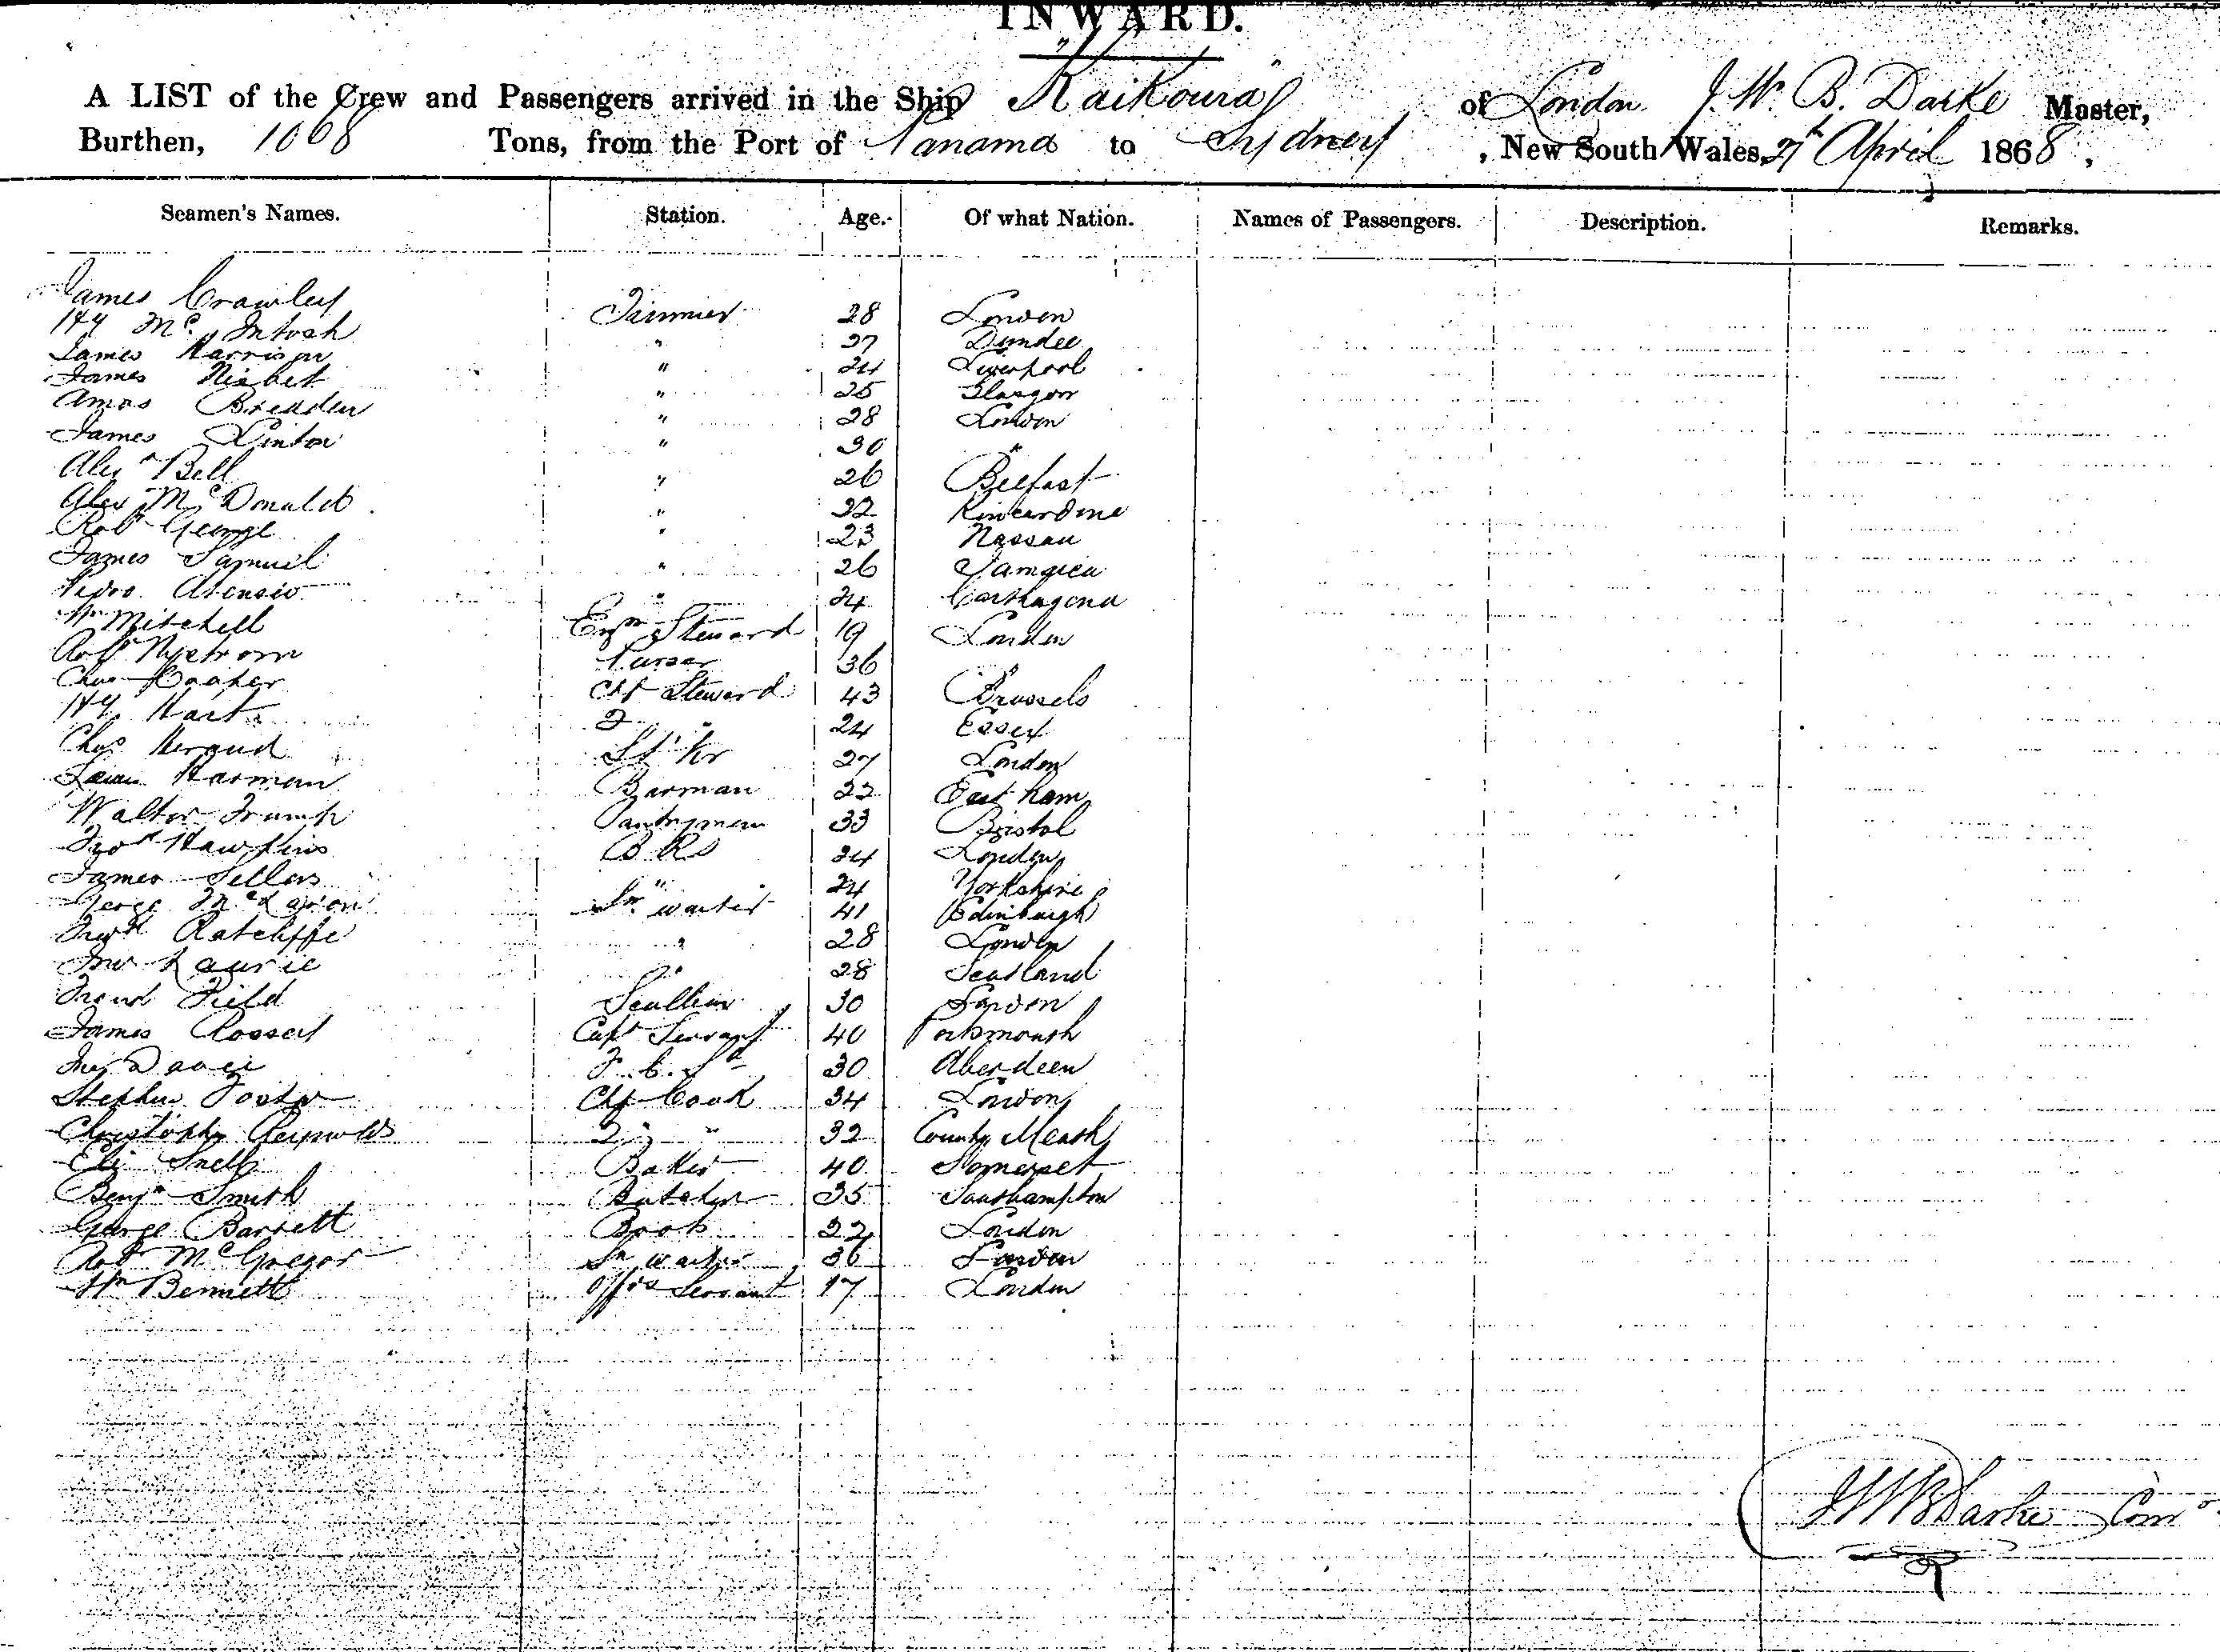 INWARD.
A LIST of the Crew and Passengers arrived in the Ship "Kaikoura" of London J. W. B. Darke Master,
Burthen, 1068 Tons, from the Port of Panama to Sydney, New South Wales, April 1868,
Seamen's Names. Station. Age. Of what Nation. Names of Passengers. Description. Remarks.
James Crawley Trimmer 28 London
Hy McIntosh " 27 Dundee
James Harrison " 24 Liverpool
James Nisbet " 25 Glasgow
Amos Breaden " 28 London
James Linton " 30 "
Alexr Bell " 26 Belfast
Alexr McDonald " 22 Kincardine
Robt George " 23 Nassau
James Samuel " 26 Jamaica
Pedro Atensio " 24 Carthagena
Wm Mitchell Steward 19 London
Nystrom Purser 36 "
Chas Cooper Chf Steward 43 Brussels
Hy Hart 2 " 24 Essex
Chas Heraud St Kr 27 London
Harman Barman 22 East Ham
Walter Trump Pantryman 33 Bristol
Hawkins B.R.S 24 London
James Sellers " 24 Yorkshire
McLaron Sn waiter 41 Edinburgh
Fredk Ratcliffe " 28 London
Jno Laurie " 28 Scotland
Field Scullion 30 London
James Rosser Capt Servant 40 Portsmouth
30 Aberdeen
Stephen Foster Chf Cook 34 London
Christophr Reynolds 2 " " 32 County Meath
Eli Snell Baker 40 Somerset
Benjn Smith Butcher 35 Southampton
George Barrett Boots 22 London
Robt McGregor Sn waiter 36 London
Wm Bennett Offrs Servant 17 London
JWBDarke Comr